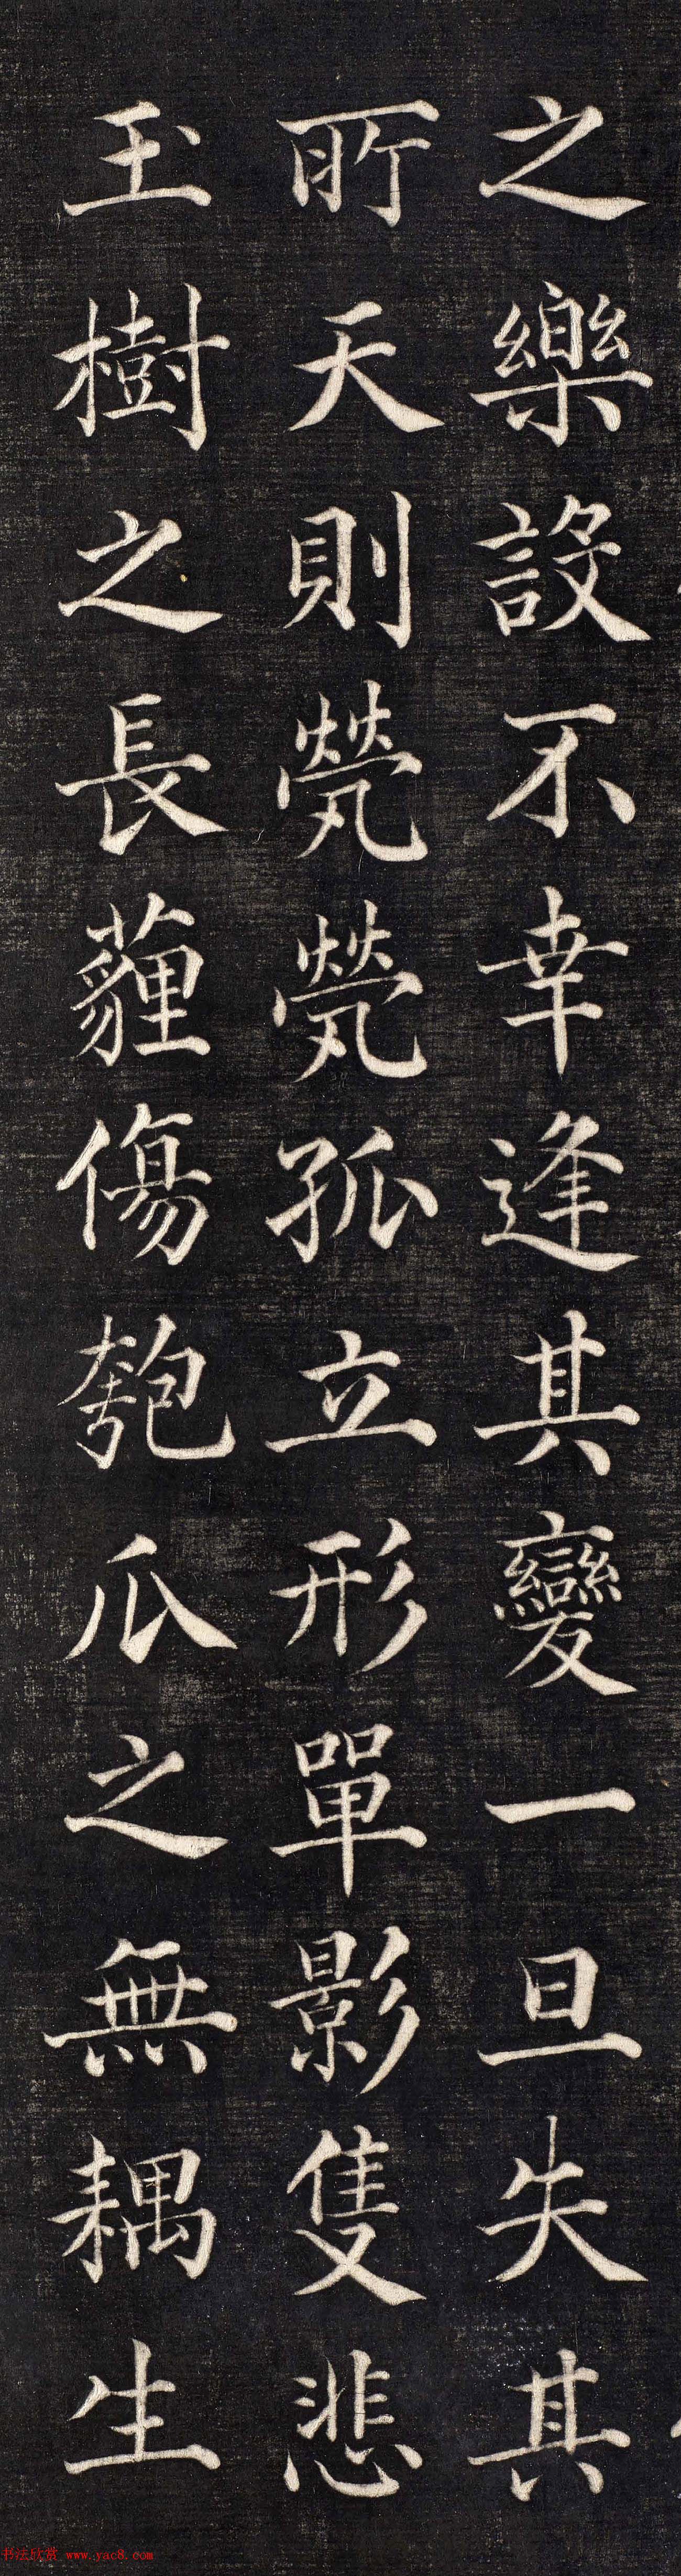 之樂設不幸逢其變一旦失其
所天則煢煢孤立形單影隻悲
玉樹之長薶傷匏瓜之無耦生
书法欣赏 www.yac8.com